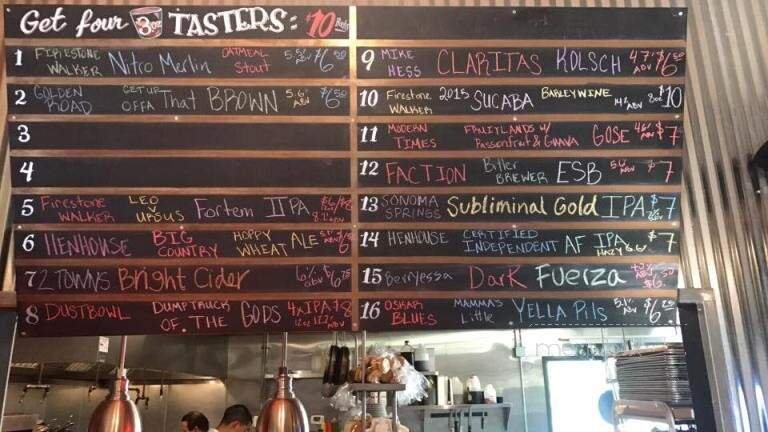 Get four 3oz TASTERS: $10
1 FIRESTONE WALKER Nitro Merlin OATMEAL Stout $6.50
2 GOLDEN ROAD GET UP OFFA That BROWN 5.6% ABV $6.50
3
4
5 Firestone WALKER LEO V URSUS Fortem IIPA
6 HENHOUSE BIG COUNTRY HOPPY WHEAT ALE
7 2 TOWNS Bright Cider 6% $6.75
8 DUSTBOWL DUMPTRUCK OF THE GODS 4xIPA
9 MIKE HESS CLARITAS KOLSCH 4.7% ABV $6.50
10 Firestone WALKER 2015 SUCABA BARLEYWINE 14% ABV 8oz $10
11 MODERN TIMES FRUITLANDS w/ PASSIONFRUIT & GUAVA GOSE ABV $7
12 FACTION Bitter BREWER ESB ABV $7
13 SONOMA SPRINGS Subliminal Gold IPA $7
14 HENHOUSE CERTIFIED INDEPENDENT AF IPA HAZY 6.6% $7
15 Berryessa Dark FUERZA
16 OSKAR BLUES MAMMAS Little YELLA PILS 5.1% ABV